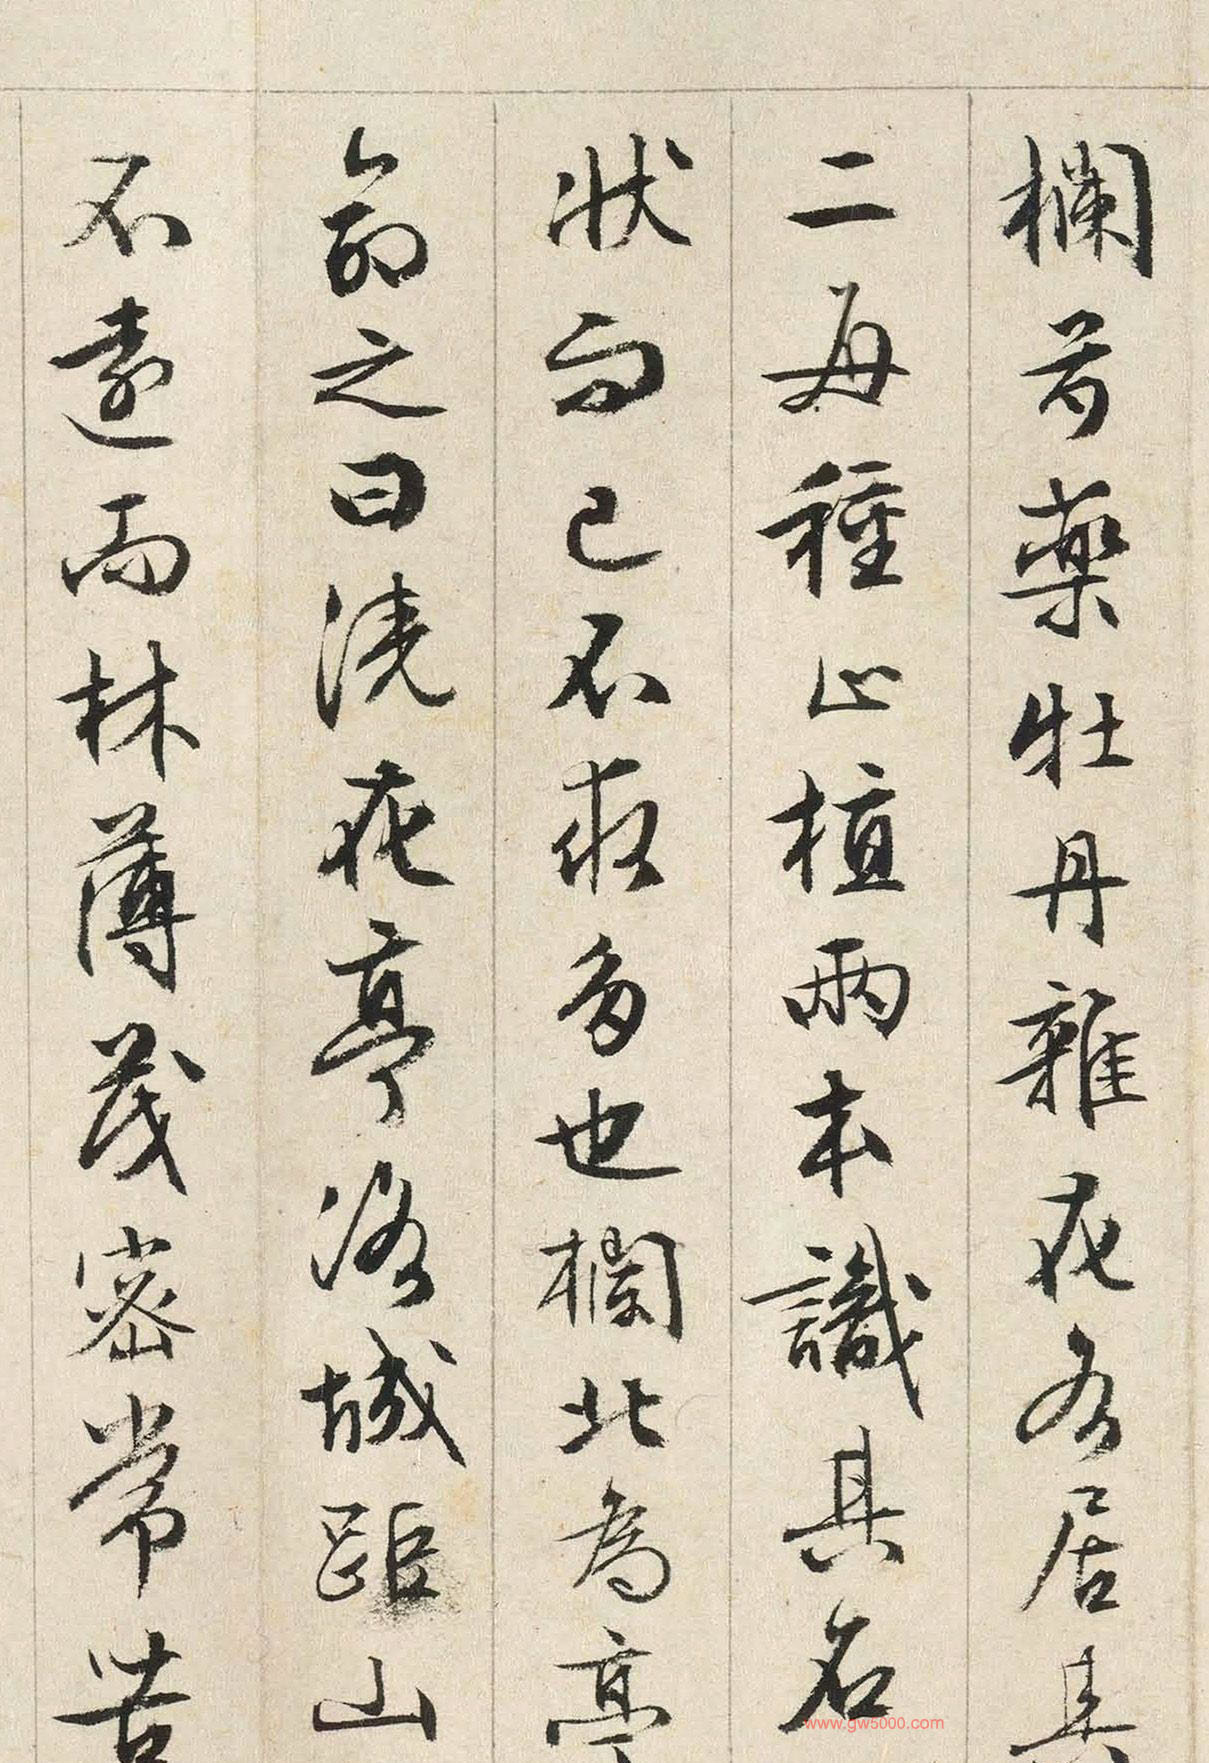 欄芍藥牡丹雜花各居其
二每種止植兩本識其名
狀而已不求多也欄北為亭
命之曰澆花亭洛城距山
不遠而林薄茂密常苦
www.gw5000.com